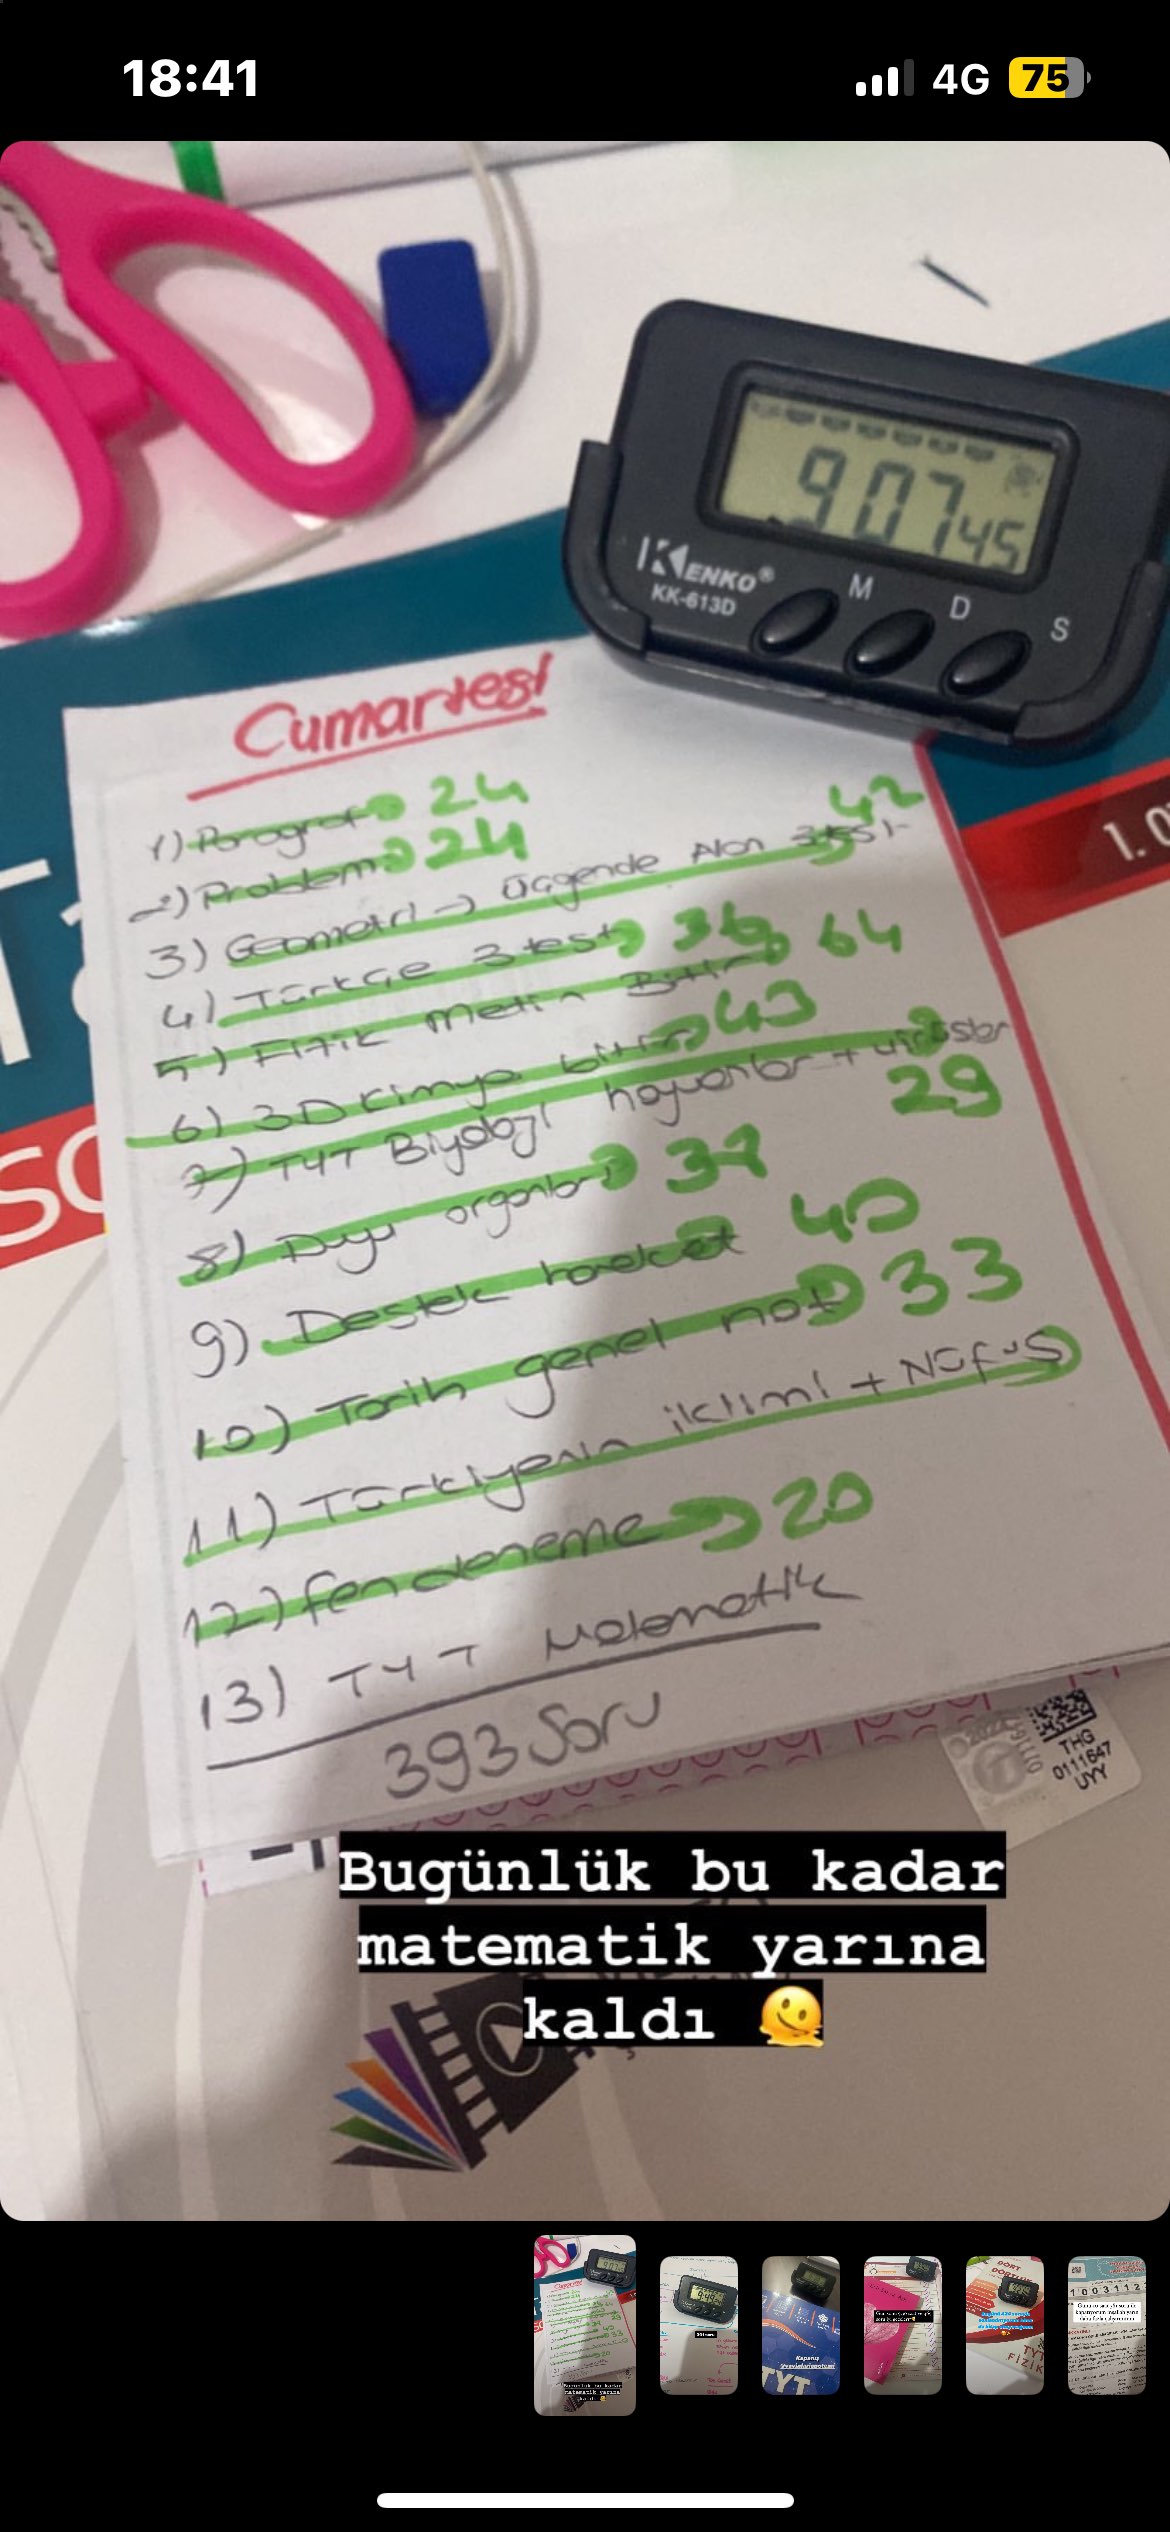 18:41 4G 75
9 07 45
KENKO®
KK-613D
M D S
Cumartesi
1) Paragraf 24
2) Problem 24
3) Geometri → üçgende Alan 42
4) Türkçe 3 test 36
5) Fizik metin Bitir 64
6) 3D Kimya bitir 43
7) TYT Biyoloji hayvanlar + virüsler
29
8) Duyu organları 38
9) Destek hareket 40
10) Tarih genel not 33
11) Türkiyenin iklimi + Nüfus
12) fen deneme 20
13) TYT Matematik
393 Soru
1.O
THG
0111647
UYY
Bugünlük bu kadar
matematik yarına
kaldı 🫠